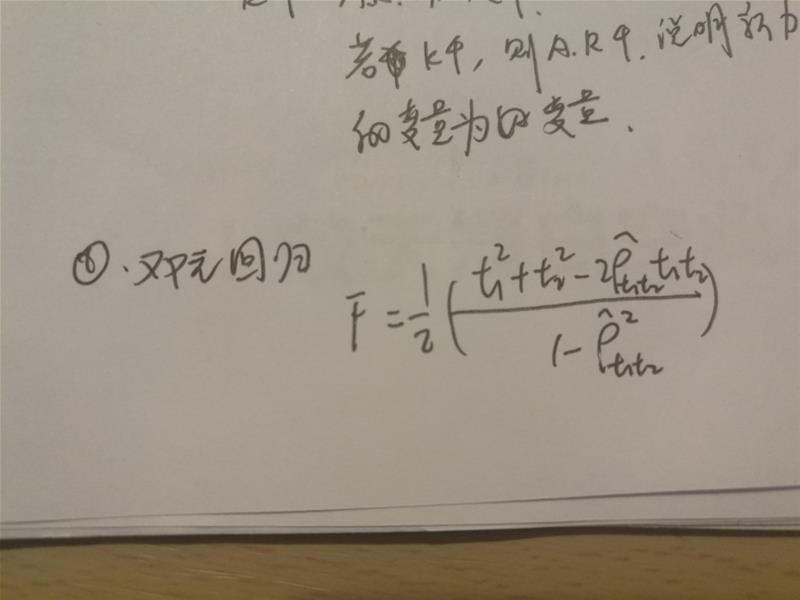 若 K个,则A.R个.说明新
的变量为 变量.
⑥.双元回归
F = 1/2 ( (t₁² + t₂² - 2ρ̂t₁t₂ t₁t₂) / (1 - ρ̂²t₁t₂) )